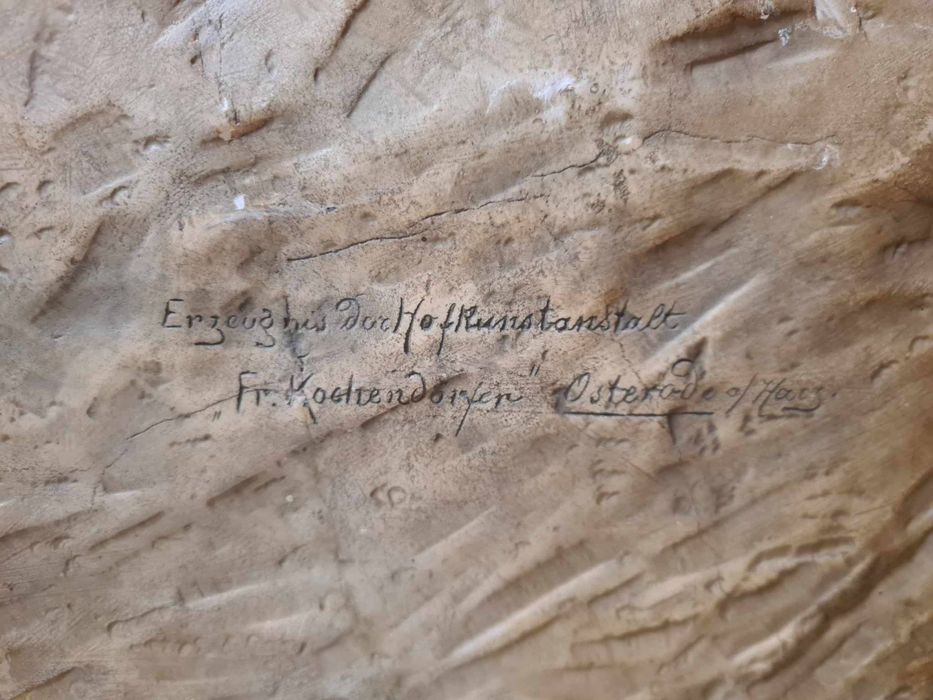 Erzeugnis der Hofkunstanstalt
„Fr. Kochendörfer" Osterode a/Harz.